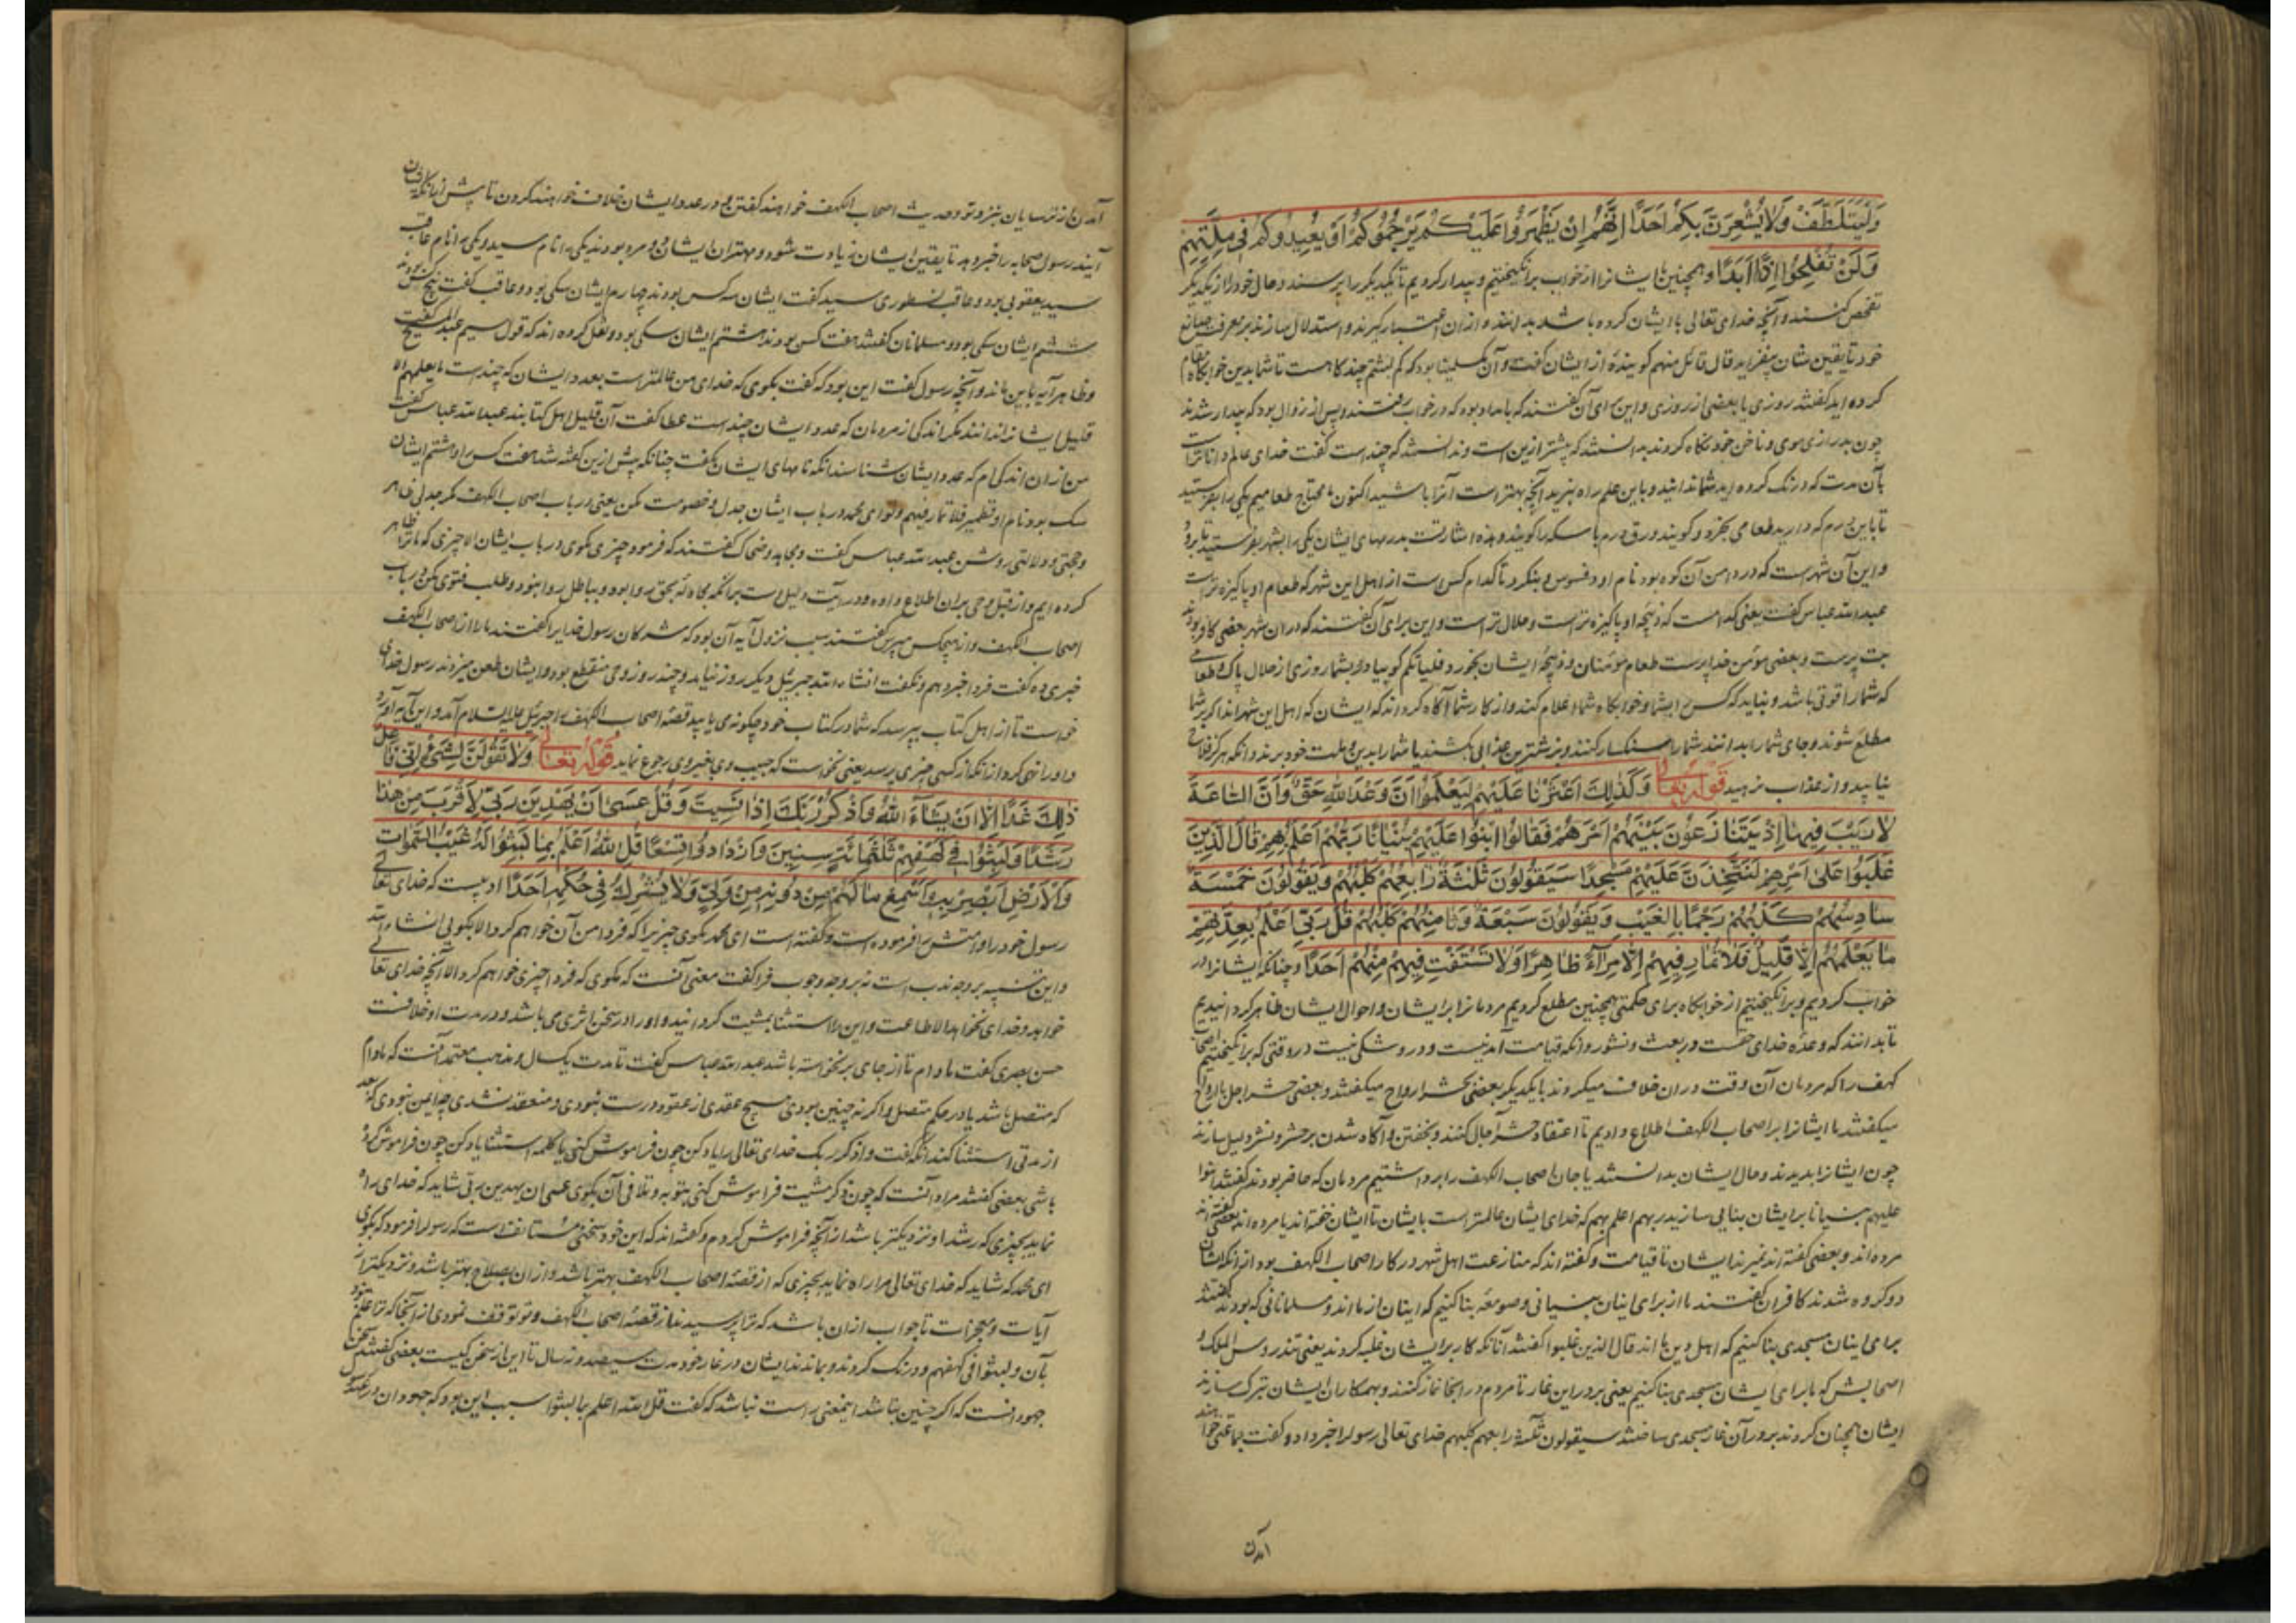 وَلْيَتَلَطَّفْ وَلَا يُشْعِرَنَّ بِكُمْ أَحَدًا إِنَّهُمْ إِنْ يَظْهَرُوا عَلَيْكُمْ يَرْجُمُوكُمْ أَوْ يُعِيدُوكُمْ فِي مِلَّتِهِمْ
وَلَنْ تُفْلِحُوا إِذًا أَبَدًا و همچنین ایشانرا از خواب برانگیختیم و بیدار کردیم تا یکدیگر را پرسند و حال خود را از یکدیگر
تفحص کنند و آنچه خدای تعالی با ایشان کرده باشد بدانند و از آن اعتبار گیرند و استدلال سازند بر معرفت صانع
خود تا یقین شان بیفزاید قال قائل منهم گوینده از ایشان گفت و آن بود که کم لبثتم چند گاهست تا شما بدین خوابگاه مقام
کرده اید گفتند روزی یا بعضی از روزی و این برای آن گفتند که بامداد بود که در خواب رفتند و پس از زوال بود که بیدار شدند
چون بدرازی موی و ناخن خود نگاه کردند بدانستند که بیشتر ازین است و ندانستند که چند است گفت خدای عالم و داناتر است
بآن مدت که درنگ کرده اید شما ندانید و باین علم راه نبرید آنچه بهتر است آنرا باشید اکنون ما محتاج طعامیم یکی را بفرستید
تا باین درم که دارید طعامی بخرد و گویند ورق درم با سکه را گویند و هذه اشارتست بدرمهای ایشان یکی را بشهر بفرستید تا برود
و این آن شهر است که در دامن آن کوه بود نام او دفسوس و بنگرد تا کدام کس است از اهل این شهر که طعام او پاکیزه تر است
عبد الله عباس گفت یعنی کدام است که ذبیحه او پاکیزه تر است و حلال تر است و این برای آن گفتند که در آن شهر بعضی کافر بودند
بت پرست و بعضی مؤمن خدا پرست طعام مؤمنان و ذبیحه ایشان بخورد فلیأتکم گو بیاورد بشما روزی از حلال پاک و طعامی
که شما را قوتی باشد و نباید که کس را بشما و خوابگاه شما اعلام کند و از کار شما آگاه گرداند که ایشان که اهل این شهراند اگر بر شما
مطلع شوند و جای شما را بدانند شما را سنگسار کنند و بزشترین عذابی بکشند یا شما را بدین و ملت خود برند و آنکه هرگز فلاح
نیابید و از عذاب نرهید قوله تعالی وَكَذَلِكَ أَعْثَرْنَا عَلَيْهِمْ لِيَعْلَمُوا أَنَّ وَعْدَ اللَّهِ حَقٌّ وَأَنَّ السَّاعَةَ
لَا رَيْبَ فِيهَا إِذْ يَتَنَازَعُونَ بَيْنَهُمْ أَمْرَهُمْ فَقَالُوا ابْنُوا عَلَيْهِمْ بُنْيَانًا رَبُّهُمْ أَعْلَمُ بِهِمْ قَالَ الَّذِينَ
غَلَبُوا عَلَى أَمْرِهِمْ لَنَتَّخِذَنَّ عَلَيْهِمْ مَسْجِدًا سَيَقُولُونَ ثَلَاثَةٌ رَابِعُهُمْ كَلْبُهُمْ وَيَقُولُونَ خَمْسَةٌ
سَادِسُهُمْ كَلْبُهُمْ رَجْمًا بِالْغَيْبِ وَيَقُولُونَ سَبْعَةٌ وَثَامِنُهُمْ كَلْبُهُمْ قُلْ رَبِّي أَعْلَمُ بِعِدَّتِهِمْ
مَا يَعْلَمُهُمْ إِلَّا قَلِيلٌ فَلَا تُمَارِ فِيهِمْ إِلَّا مِرَاءً ظَاهِرًا وَلَا تَسْتَفْتِ فِيهِمْ مِنْهُمْ أَحَدًا و چنانکه ایشانرا در
خواب کردیم و برانگیختیم از خوابگاه برای حکمتی همچنین مطلع کردیم مردمانرا بر ایشان و احوال ایشان ظاهر گردانیدیم
تا بدانند که وعده خدای حقست در بعث و نشور و آنکه قیامت آمدنیست و درو شکی نیست در وقتی که برانگیختیم اصحاب
کهف را که مردمان آن وقت در آن خلاف میکردند با یکدیگر بعضی بحشر ارواح میگفتند و بعضی حشر اجل با ارواح
میگفتند ما ایشانرا بر اصحاب الکهف اطلاع دادیم تا اعتقاد حشر اجال کنند و بخفتن و آگاه شدن بر حشر و نشر دلیل سازند
چون ایشانرا بدیدند و حال ایشان بدانستند یا جان اصحاب الکهف را برداشتیم مردمان که حاضر بودند گفتند ابنوا
علیهم بنیانا بر ایشان بنایی سازید ربهم اعلم بهم که خدای ایشان عالمتر است بایشان تا ایشان خفته اند یا مرده اند بعضی گفته اند
مرده اند و بعضی گفته اند نمیرند ایشان تا قیامت و گفته اند که منازعت اهل شهر در کار اصحاب الکهف بود از آنکه ایشان
دو گروه شدند کافران گفتند ما از برای اینان بنیانی و صومعه بنا کنیم که اینان از ما اند و مسلمانانی که بودند گفتند
برای اینان مسجدی بنا کنیم که اهل دین ما اند قال الذین غلبوا گفتند آنانکه کار بر ایشان غلبه کردند یعنی تندروس الملک و
اصحابش که ما برای ایشان مسجدی بنا کنیم یعنی بر در این غار تا مردم در آنجا نماز کنند و بهمکاران ایشان تبرک سازند
ایشان همچنان کردند بر در آن غار مسجدی ساختند سیقولون ثلثة رابعهم کلبهم خدای تعالی رسول را خبر داد و گفت جماعتی خواهند
آمدن
آمدن از ترسایان بنزد تو و حدیث اصحاب الکهف خواهند گفتن و در عدد ایشان خلاف خواهند کردن تا پیش از آنکه ایشان
آیند رسول صحابه را خبر دهد تا یقین ایشان زیادت شود و مهتران ایشان دو مرد بودند یکی را نام سید و یکی را نام عاقب
سید یعقوبی بود و عاقب نسطوری سید گفت ایشان سه کس بودند چهارم ایشان سگی بود و عاقب گفت پنج کس بودند
ششم ایشان سگی بود و مسلمانان گفتند هفت کس بودند هشتم ایشان سگی بود و نقل کرده اند که قول سیم عبد المسیح گفت
و ظاهر آیه باین ماند و آنچه رسول گفت این بود که گفت بگوی که خدای من عالمتر است بعدد ایشان که چندست ما یعلمهم الا
قلیل ایشانرا ندانند مگر اندکی از مردمان که عدد ایشان چند است عطا گفت آن قلیل اهل کتابند عبد الله عباس گفت
من از آن اندکی ام که عدد ایشان شناسند آنکه نامهای ایشان بگفت چنانکه پیش ازین گفته شد هفت کس را و هشتم ایشان
سگ بود نام او قطمیر فلا تمار فیهم و تو ای محمد در باب ایشان جدل و خصومت مکن یعنی در باب اصحاب الکهف مگر جدلی ظاهر
و حجتی و دلالتی روشن عبد الله عباس گفت و مجاهد و ضحاک گفتند که فرمود چیزی مگوی در باب ایشان الا چیزی که ما ترا ظاهر
کرده ایم و از قبل وحی بر آن اطلاع داده و در آیت دلیل است بر آنکه مجادله بحق روا بود و بباطل روا نبود و طلب فتوی مکن در باب
اصحاب الکهف و از هیچکس مپرس گفتند سبب نزول آیه آن بود که مشرکان رسول خدا را گفتند ما را از اصحاب الکهف
خبری ده گفت فردا خبر دهم و نگفت انشاء الله جبرئیل دیگر روز نیامد و چند روز وحی منقطع بود و ایشان طعن میزدند رسول خدای
خواست تا از اهل کتاب بپرسد که شما در کتاب خود چگونه می یابید قصه اصحاب الکهف را جبرئیل علیه السلام آمد و این آیه آورد
و او را نهی کرد از آنکه از کسی چیزی پرسد یعنی نخواست که حبیب وی بغیر وی رجوع نماید قوله تعالی وَلَا تَقُولَنَّ لِشَيْءٍ إِنِّي فَاعِلٌ
ذَلِكَ غَدًا إِلَّا أَنْ يَشَاءَ اللَّهُ وَاذْكُرْ رَبَّكَ إِذَا نَسِيتَ وَقُلْ عَسَى أَنْ يَهْدِيَنِ رَبِّي لِأَقْرَبَ مِنْ هَذَا
رَشَدًا وَلَبِثُوا فِي كَهْفِهِمْ ثَلَثَمِائَةٍ سِنِينَ وَازْدَادُوا تِسْعًا قُلِ اللَّهُ أَعْلَمُ بِمَا لَبِثُوا لَهُ غَيْبُ السَّمَوَاتِ
وَالْأَرْضِ أَبْصِرْ بِهِ وَأَسْمِعْ مَا لَهُمْ مِنْ دُونِهِ مِنْ وَلِيٍّ وَلَا يُشْرِكُ فِي حُكْمِهِ أَحَدًا ادبیست که خدای تعالی
رسول خود را و امتش را فرموده است و گفته است ای محمد مگوی چیزی را که فردا من آن خواهم کرد الا بگویی انشاء الله
و این تنبیه بر وجه ندب است نه بر وجه وجوب فرا گفت معنی آنست که مگوی که فردا چیزی خواهم کرد الا آنچه خدای تعالی
خواهد و خدای نخواهد الا طاعت و این را استثنا بمشیت گردانید و او را در سخن اثری می باشد و در مدت او خلافست
حسن بصری گفت مادام تا از جای برنخواسته باشد عبد الله عباس گفت تا مدت یکسال و مذهب معتمد آنست که مادام
که متصل باشد یا در حکم متصل و اگر نه چنین بودی هیچ عقدی از عقود درست نبودی و منعقد نشدی چه ایمن نبودی که بعد
از مدتی استثنا کند آنکه گفت و اذکر ربک خدای تعالی را یاد کن چون فراموش کنی یا کلمه استثنا یاد کن چون فراموش کرده
باشی بعضی گفتند مراد آنست که چون ذکر مشیت فراموش کنی بتوبه و تلافی آن بگوی عسی ان یهدین ربی شاید که خدای راه
نماید بچیزی که رشد او نزدیکتر باشد از آنچه فراموش کردم و گفته اند که این خود سخنی مستانف است که رسول را فرمود که بگوی
ای محمد که شاید که خدای تعالی مرا راه نماید بچیزی که از قصه اصحاب الکهف بهتر باشد و از آن بصلاح بهتر باشد و نزدیکتر از
آیات و معجزات تا جواب از آن باشد که ترا پرسیدند از قصه اصحاب الکهف و تو توقف نمودی از آنجا که ترا علم نبود
بآن و لبثوا فی کهفهم و درنگ کردند و بماندند ایشان در غار خود مدت سیصد و نه سال تا این از سخن کیست بعضی گفتند سخن
جهودانست که اگر چنین نباشد اینمعنی راست نباشد که گفت قل الله اعلم بما لبثوا سبب این بود که جهودان در